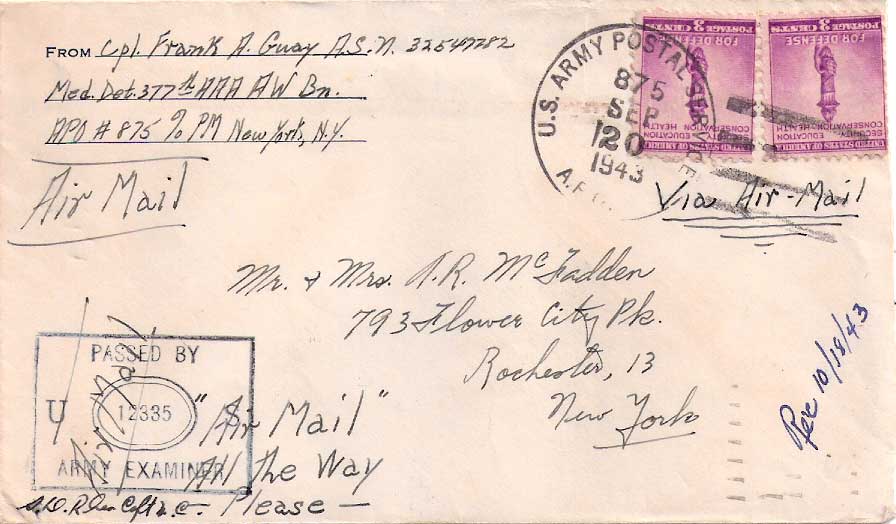 FROM Cpl. Frank A. Guay A.S.N. 32547782
Med. Det. 377th AAA AW Bn.
APO # 875 % PM New York, N.Y.
Air Mail
U.S. ARMY POSTAL SERVICE
875
SEP
20
1943
A.P.
POSTAGE 3 CENTS
FOR DEFENSE
SECURITY EDUCATION
CONSERVATION HEALTH
UNITED STATES OF AMERICA
POSTAGE 3 CENTS
FOR DEFENSE
SECURITY EDUCATION
CONSERVATION HEALTH
UNITED STATES OF AMERICA
Via Air-Mail
Mr. & Mrs. A.R. McFadden
793 Flower City Pk.
Rochester, 13
New York
Rec 10/18/43
PASSED BY
U 12335 S
ARMY EXAMINER
Air Mail
"Air Mail"
All the Way
Please —